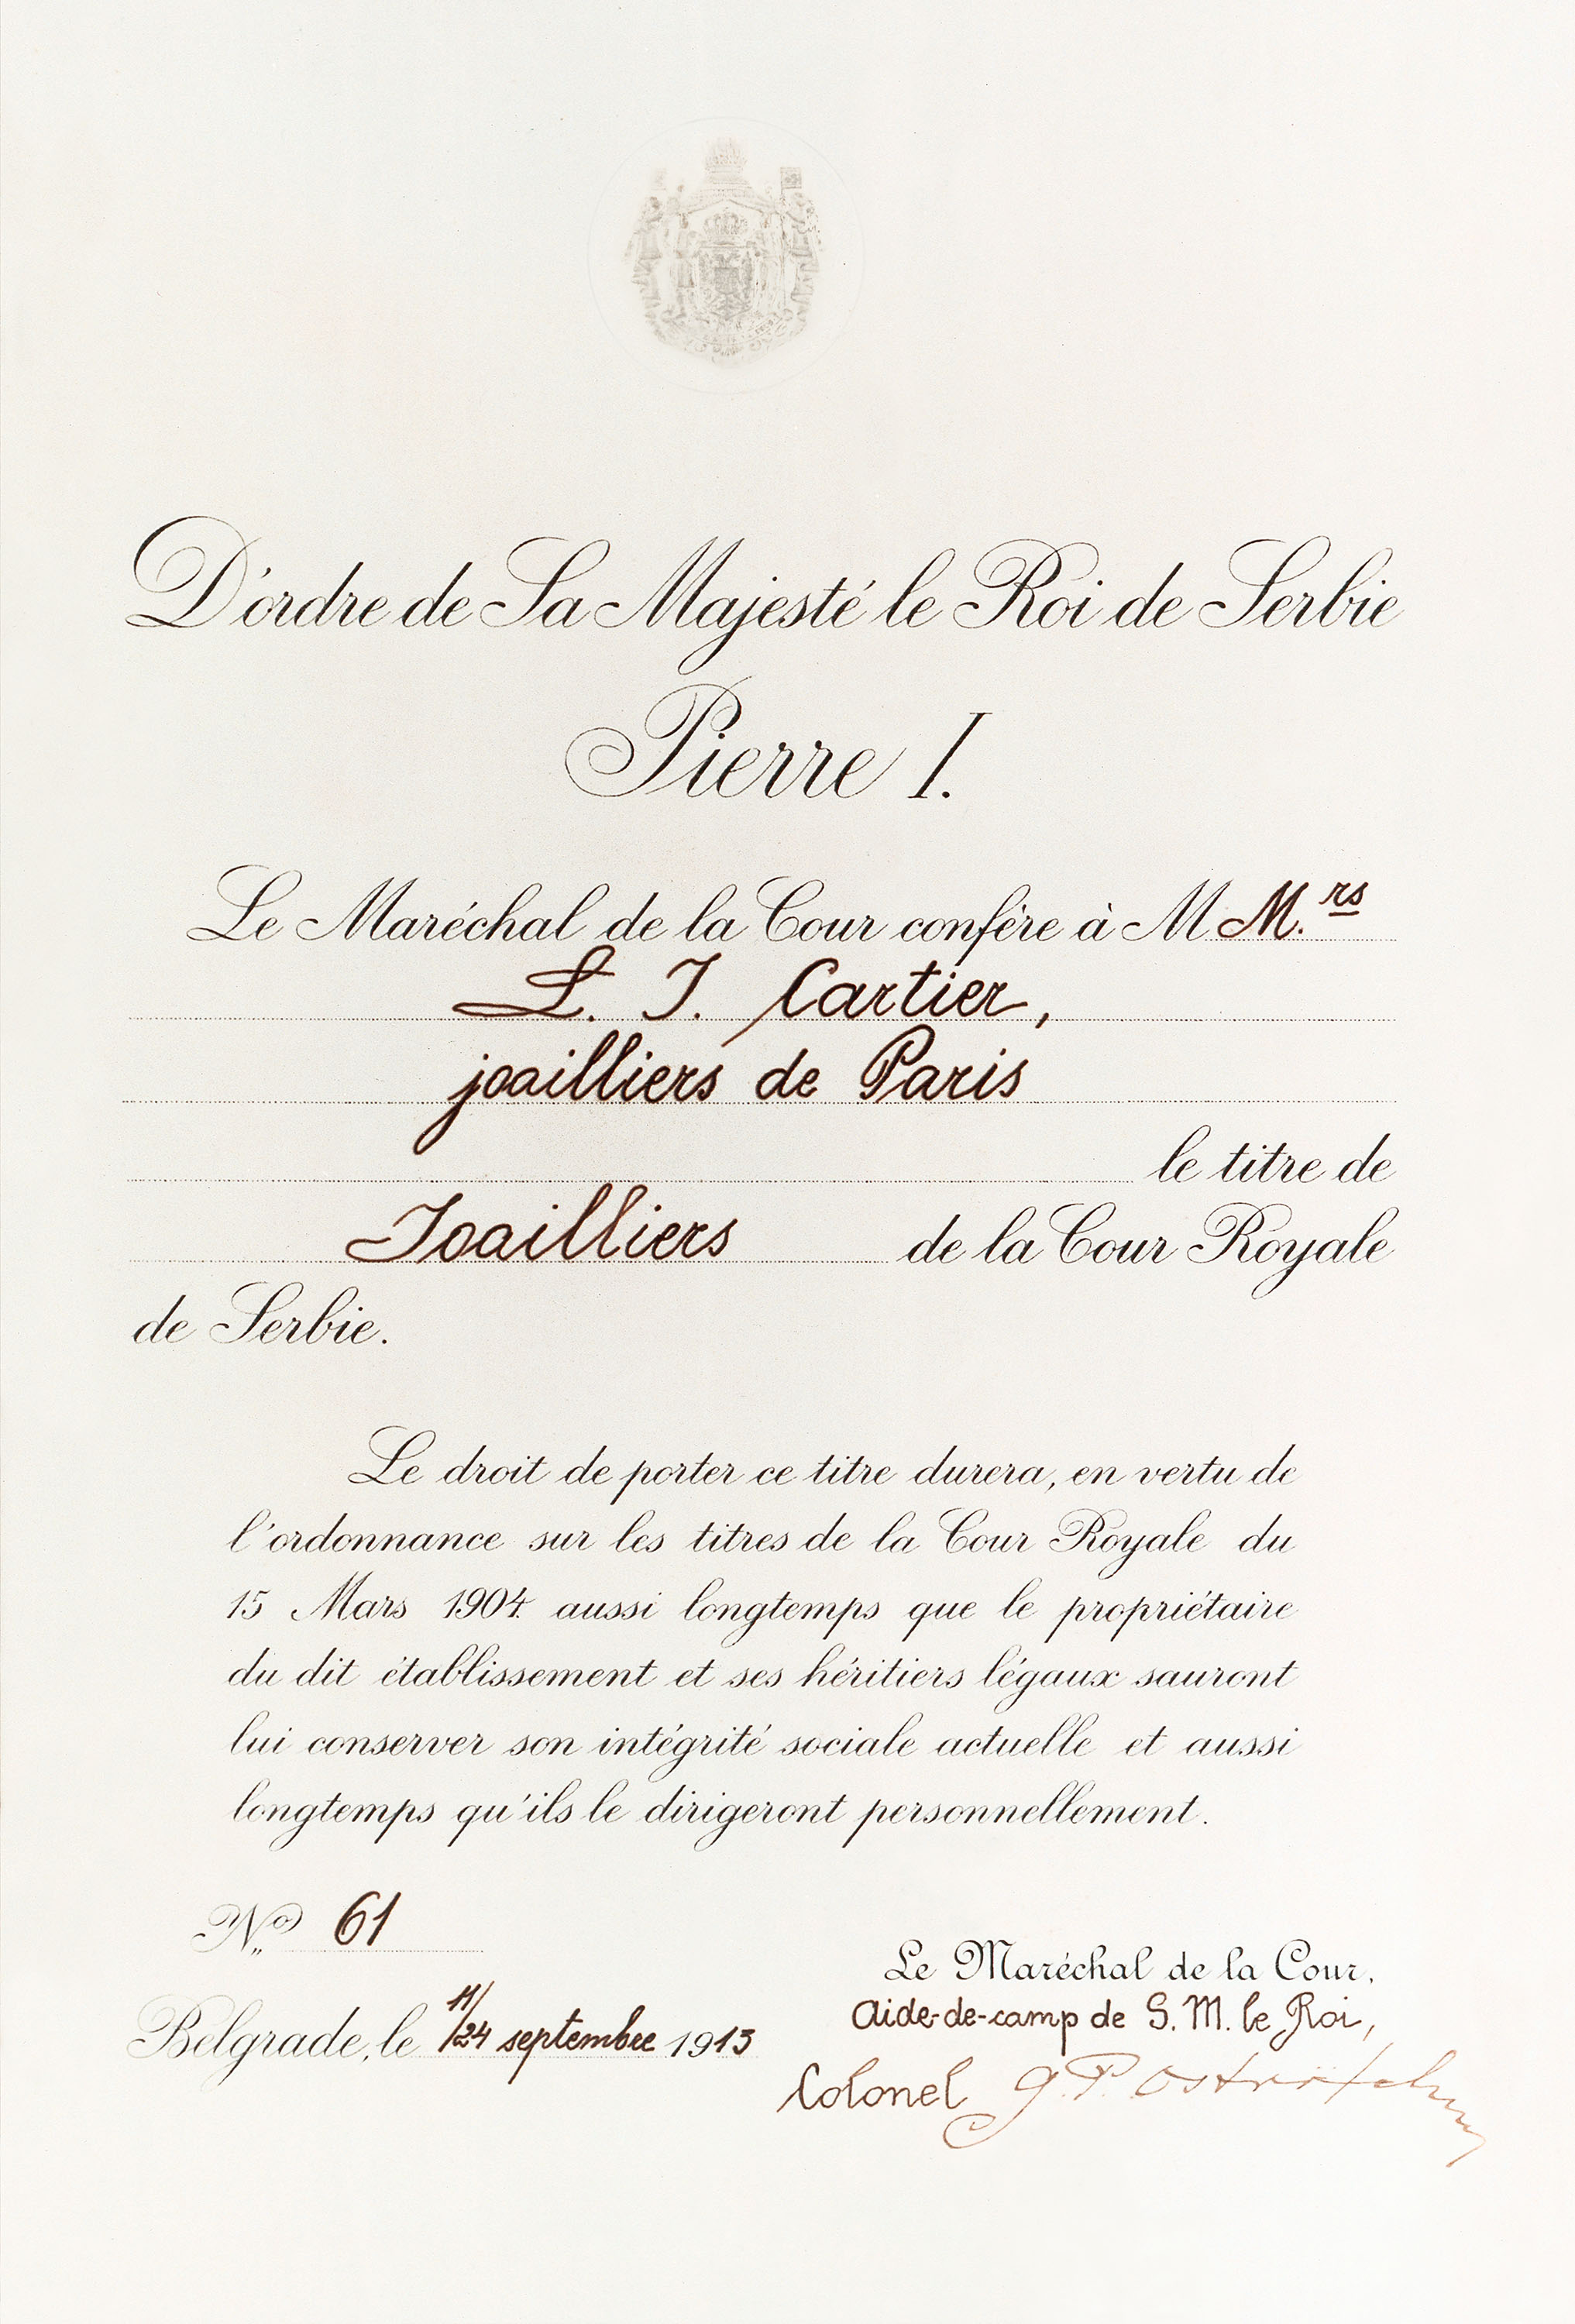 D'ordre de Sa Majesté le Roi de Serbie
Pierre I.
Le Maréchal de la Cour confère à M M.rs
L. J. Cartier,
joailliers de Paris
le titre de
Joailliers de la Cour Royale
de Serbie.
Le droit de porter ce titre durera, en vertu de
l'ordonnance sur les titres de la Cour Royale du
15 Mars 1904 aussi longtemps que le propriétaire
du dit établissement et ses héritiers légaux sauront
lui conserver son intégrité sociale actuelle et aussi
longtemps qu'ils le dirigeront personnellement.
No 61
Belgrade, le 11/24 septembre 1913
Le Maréchal de la Cour,
Aide-de-camp de S. M. le Roi,
Colonel